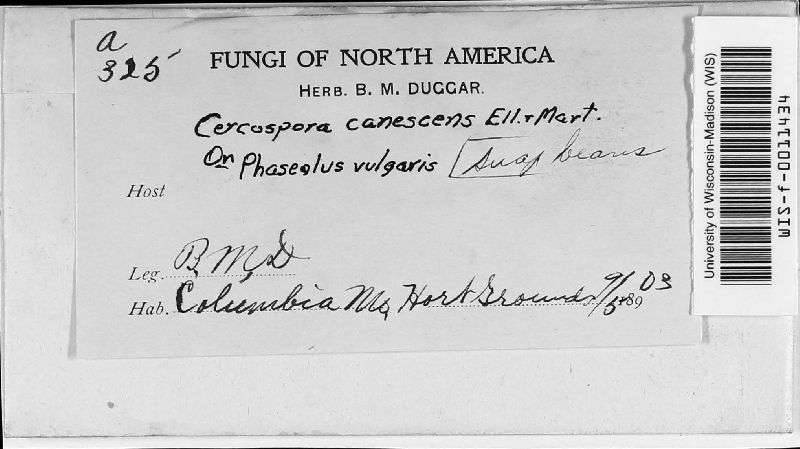 a
325
FUNGI OF NORTH AMERICA
HERB. B. M. DUGGAR.
Cercospora canescens Ell. & Mart.
On Phaseolus vulgaris [snap beans
Host
Leg. B. M. D
Hab. Columbia Mo, Hort Grounds 9/5 189 03
University of Wisconsin-Madison (WIS)
WIS-f-0041104